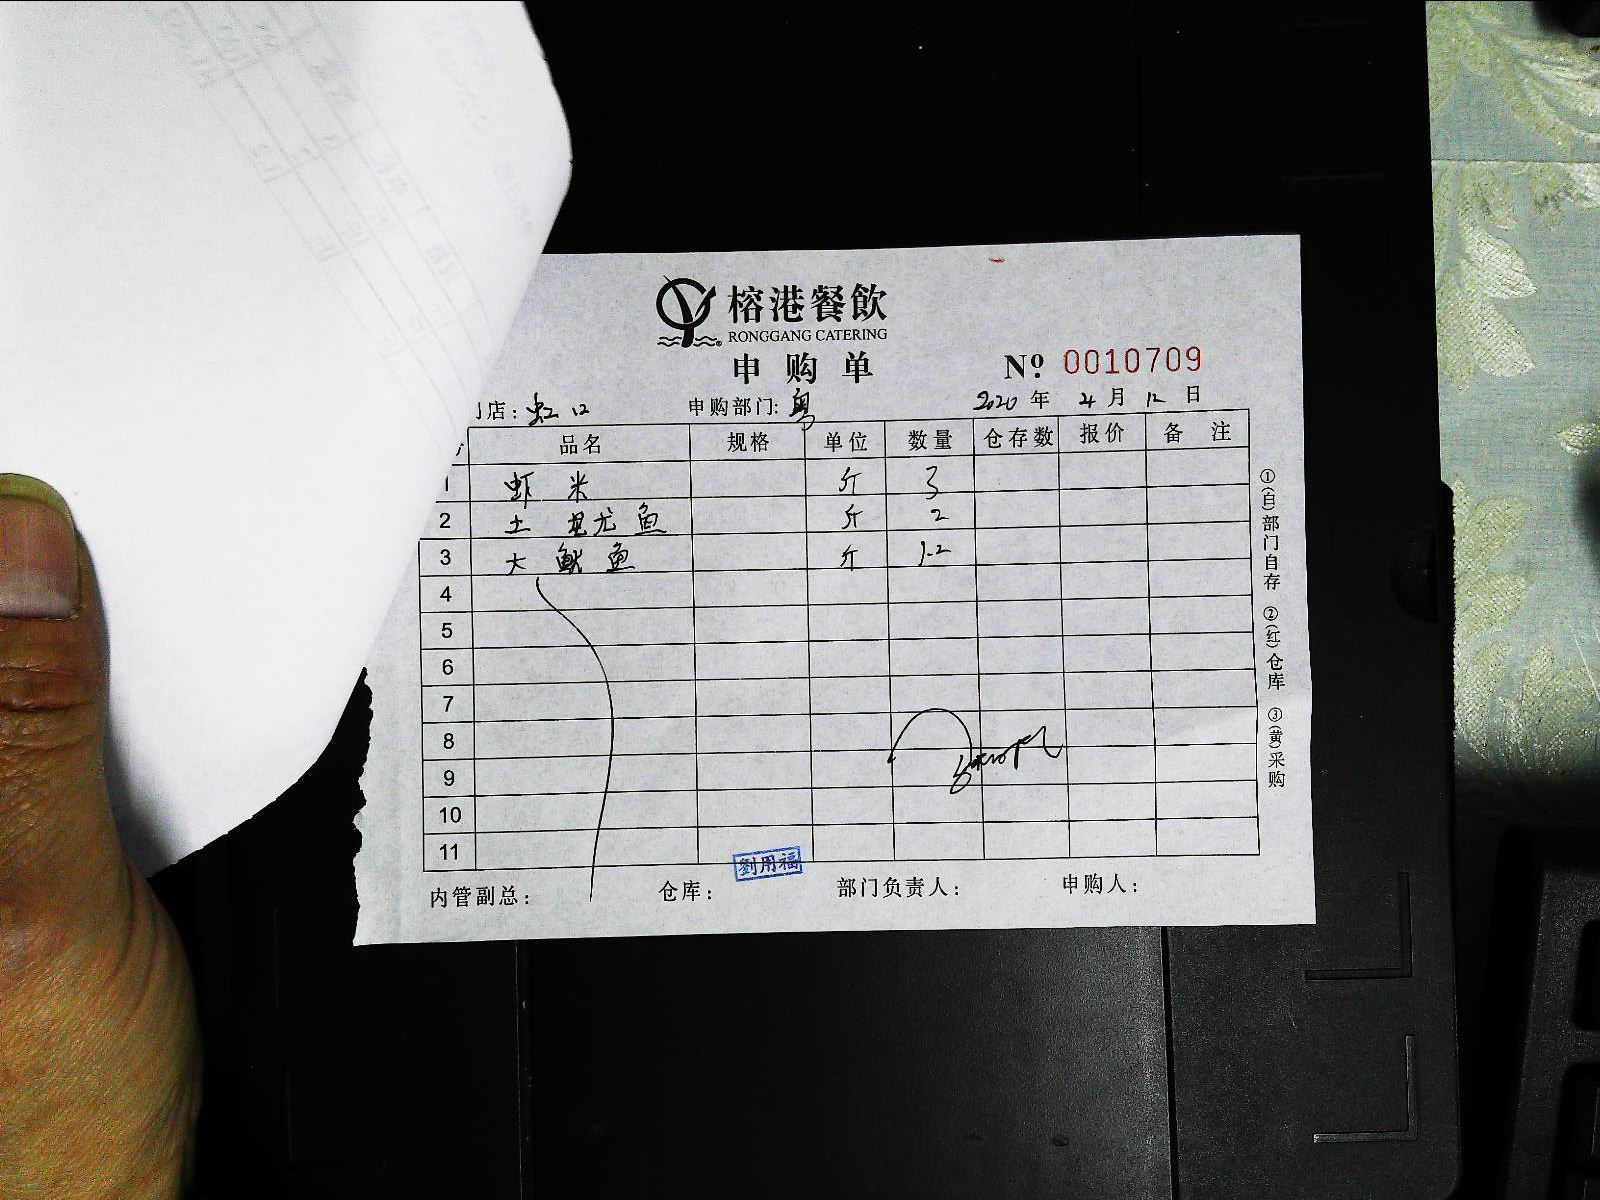 榕港餐飲
RONGGANG CATERING
申购单
№ 0010709
店：虹口 申购部门：粤 2020年 4月 12日
品名 规格 单位 数量 仓存数 报价 备注
1 虾米 斤 3
2 土尤鱼 斤 2
3 大鱿鱼 斤 1.2
4
5
6
7
8
9
10
11
劉用福
内管副总： 仓库： 部门负责人： 申购人：
①(白)部门自存 ②(红)仓库 ③(黄)采购